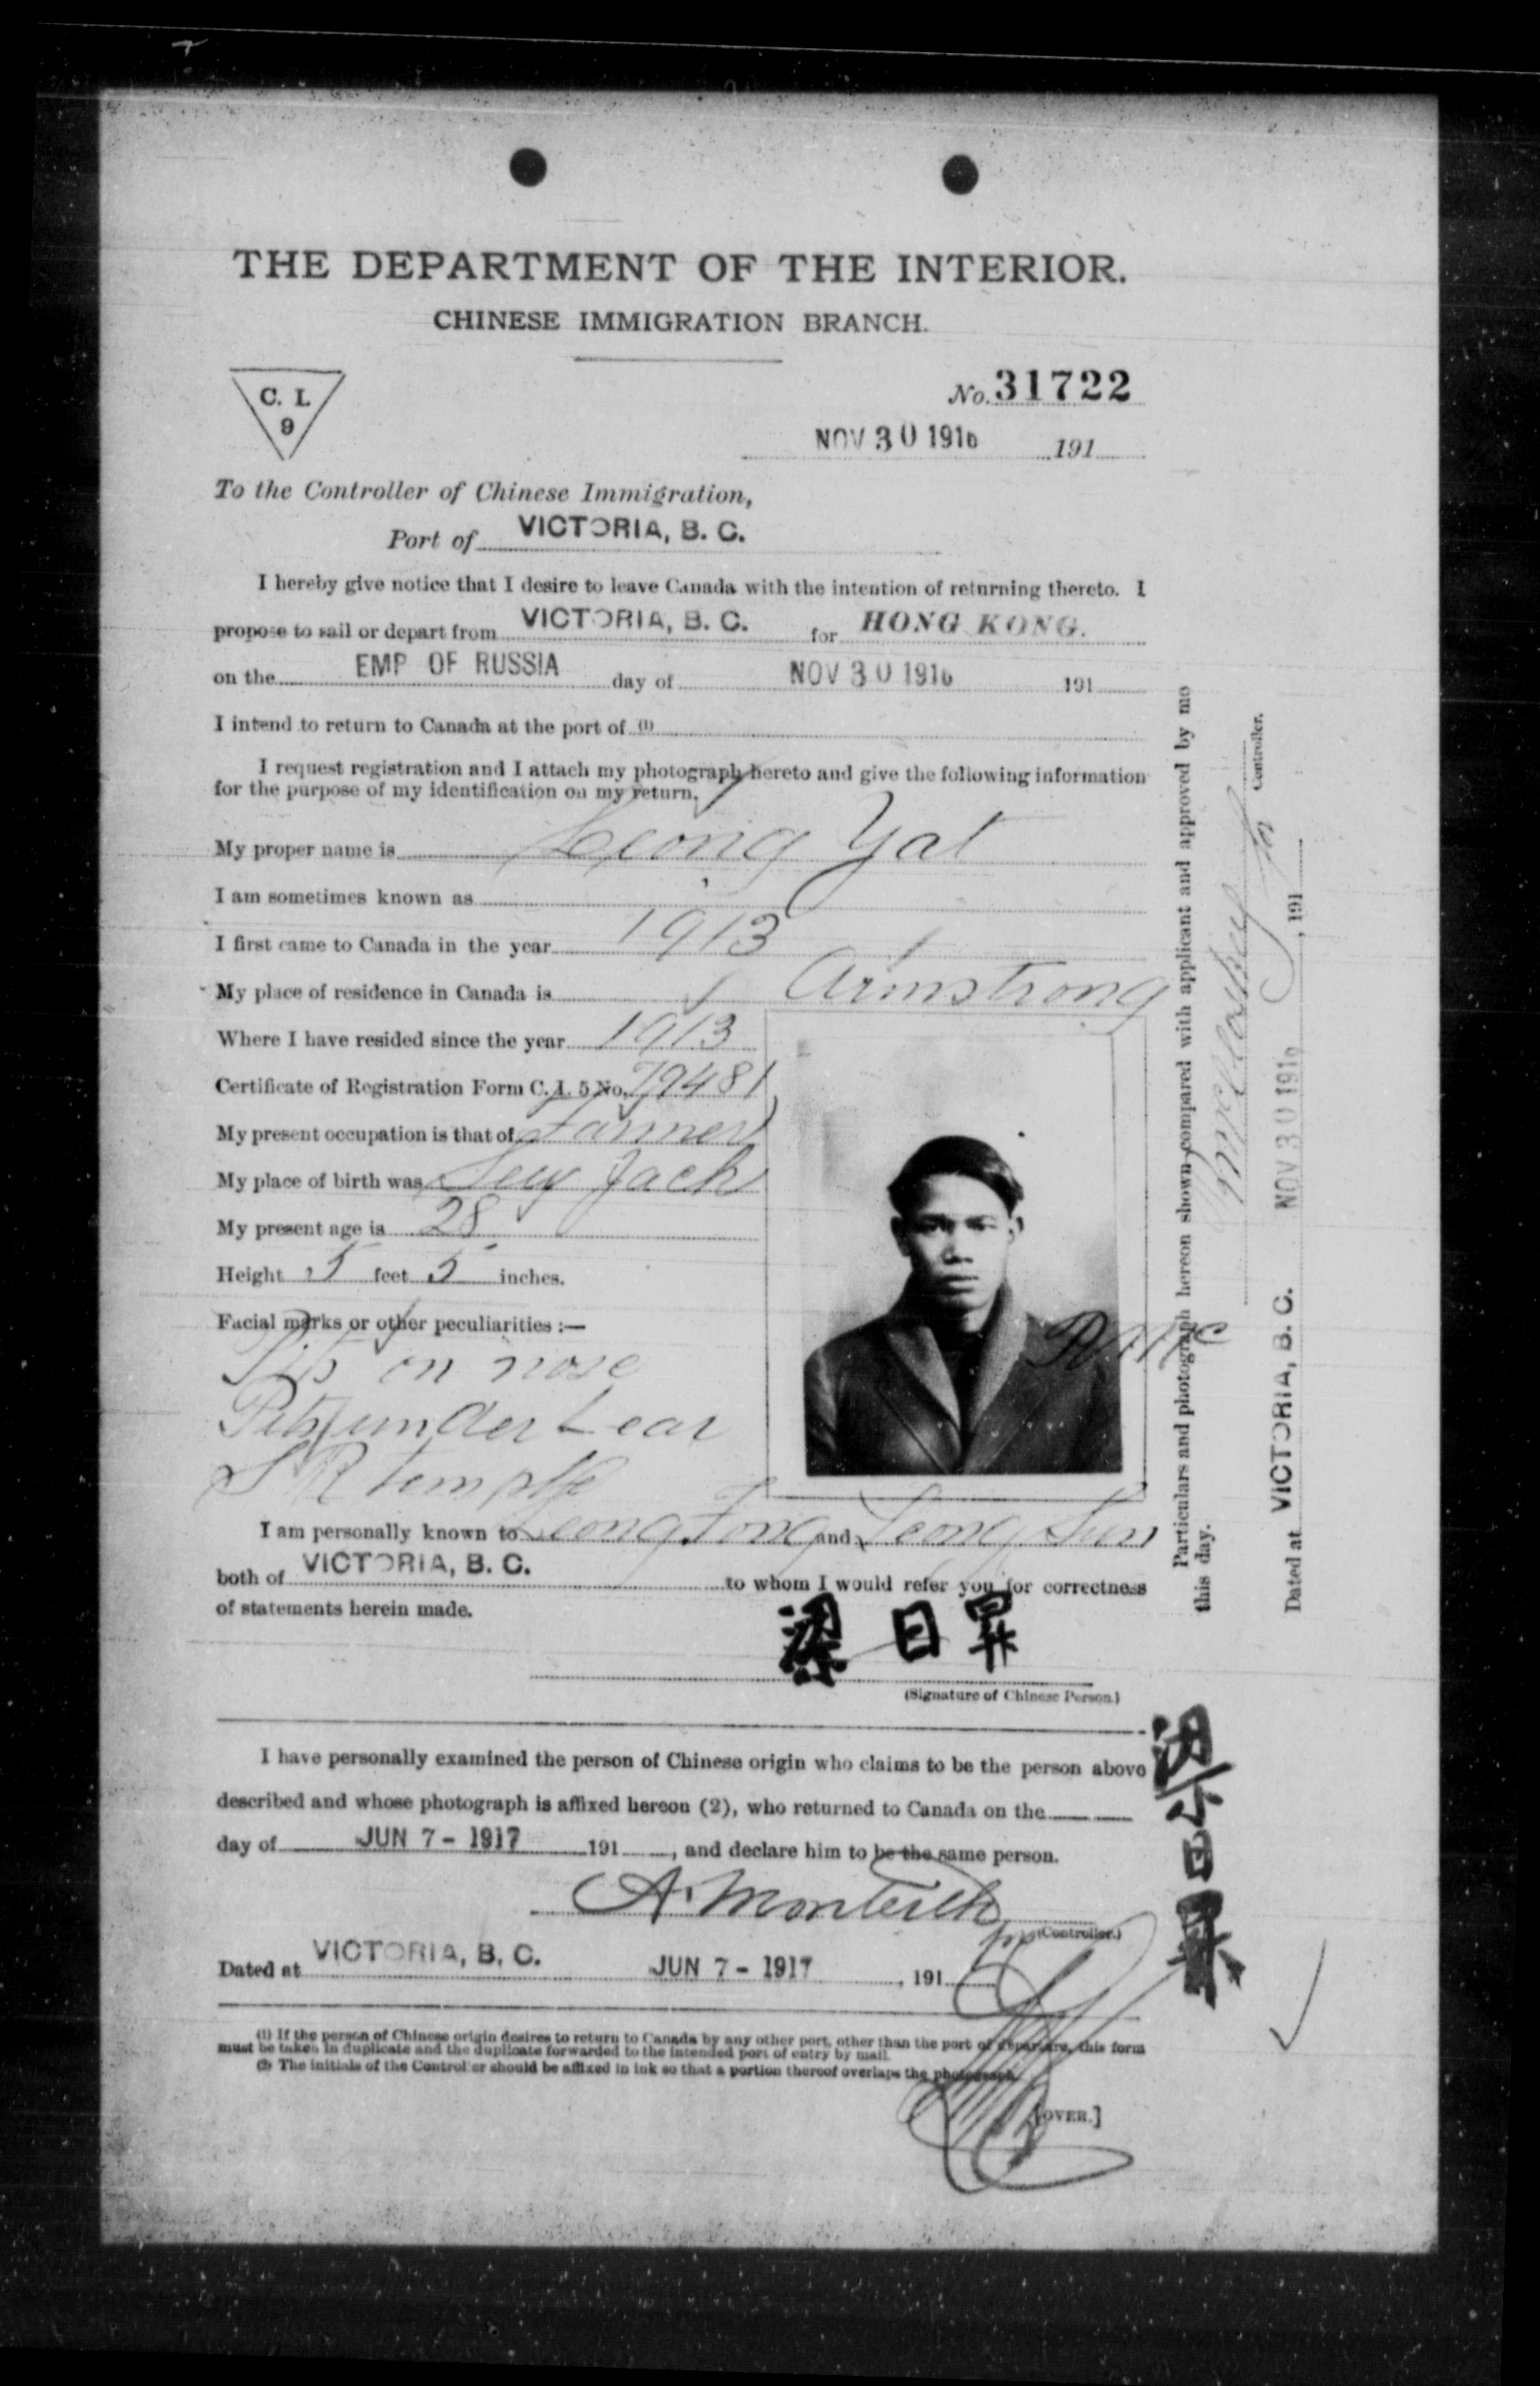 THE DEPARTMENT OF THE INTERIOR.
CHINESE IMMIGRATION BRANCH.
C. I.
9
No. 31722
NOV 30 1916 191
To the Controller of Chinese Immigration,
Port of VICTORIA, B. C.
I hereby give notice that I desire to leave Canada with the intention of returning thereto. I
propose to sail or depart from VICTORIA, B. C. for HONG KONG.
on the EMP OF RUSSIA day of NOV 30 1916 191
I intend to return to Canada at the port of (1)
I request registration and I attach my photograph hereto and give the following information
for the purpose of my identification on my return.
My proper name is Leong Yat
I am sometimes known as
I first came to Canada in the year 1913
My place of residence in Canada is Armstrong
Where I have resided since the year 1913
Certificate of Registration Form C. I. 5 No. 79481
My present occupation is that of Farmer
My place of birth was Suy Jack
My present age is 28
Height 5 feet 5 inches.
Facial marks or other peculiarities :—
Pit on nose
Pits under L ear
S R temple
I am personally known to Leong Fong and Leong Sun
both of VICTORIA, B. C. to whom I would refer you for correctness
of statements herein made.
梁日昇
(Signature of Chinese Person.)
I have personally examined the person of Chinese origin who claims to be the person above
described and whose photograph is affixed hereon (2), who returned to Canada on the
day of JUN 7 - 1917 191 , and declare him to be the same person.
A. Monteith
(Controller.)
Dated at VICTORIA, B. C. JUN 7 - 1917 , 191
(1) If the person of Chinese origin desires to return to Canada by any other port, other than the port of departure, this form
must be taken in duplicate and the duplicate forwarded to the intended port of entry by mail.
(2) The initials of the Controller should be affixed in ink so that a portion thereof overlaps the photograph.
[OVER.]
Particulars and photograph hereon shown compared with applicant and approved by me
this day.
Controller.
Dated at VICTORIA, B. C. NOV 30 1916 , 191
梁日昇